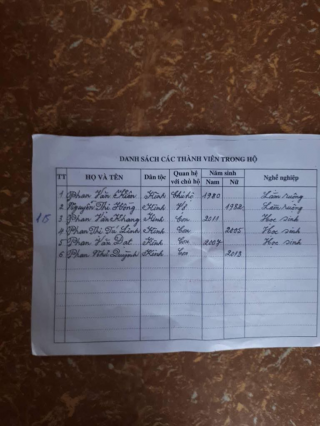 DANH SÁCH CÁC THÀNH VIÊN TRONG HỘ
TT HỌ VÀ TÊN Dân tộc Quan hệ với chủ hộ Năm sinh Nam Nữ Nghề nghiệp
1 Phan Văn Kinh Chủ hộ 1980 Làm ruộng
2 Nguyễn Thị Hồng Kinh Vợ 1982 Làm ruộng
3 Phan Văn Khang Kinh Con 2011 Học sinh
4 Phan Thị Linh Kinh Con 2005 Học sinh
5 Phan Văn Đạt Kinh Con 2007 Học sinh
6 Phan Như Quỳnh Kinh Con 2013